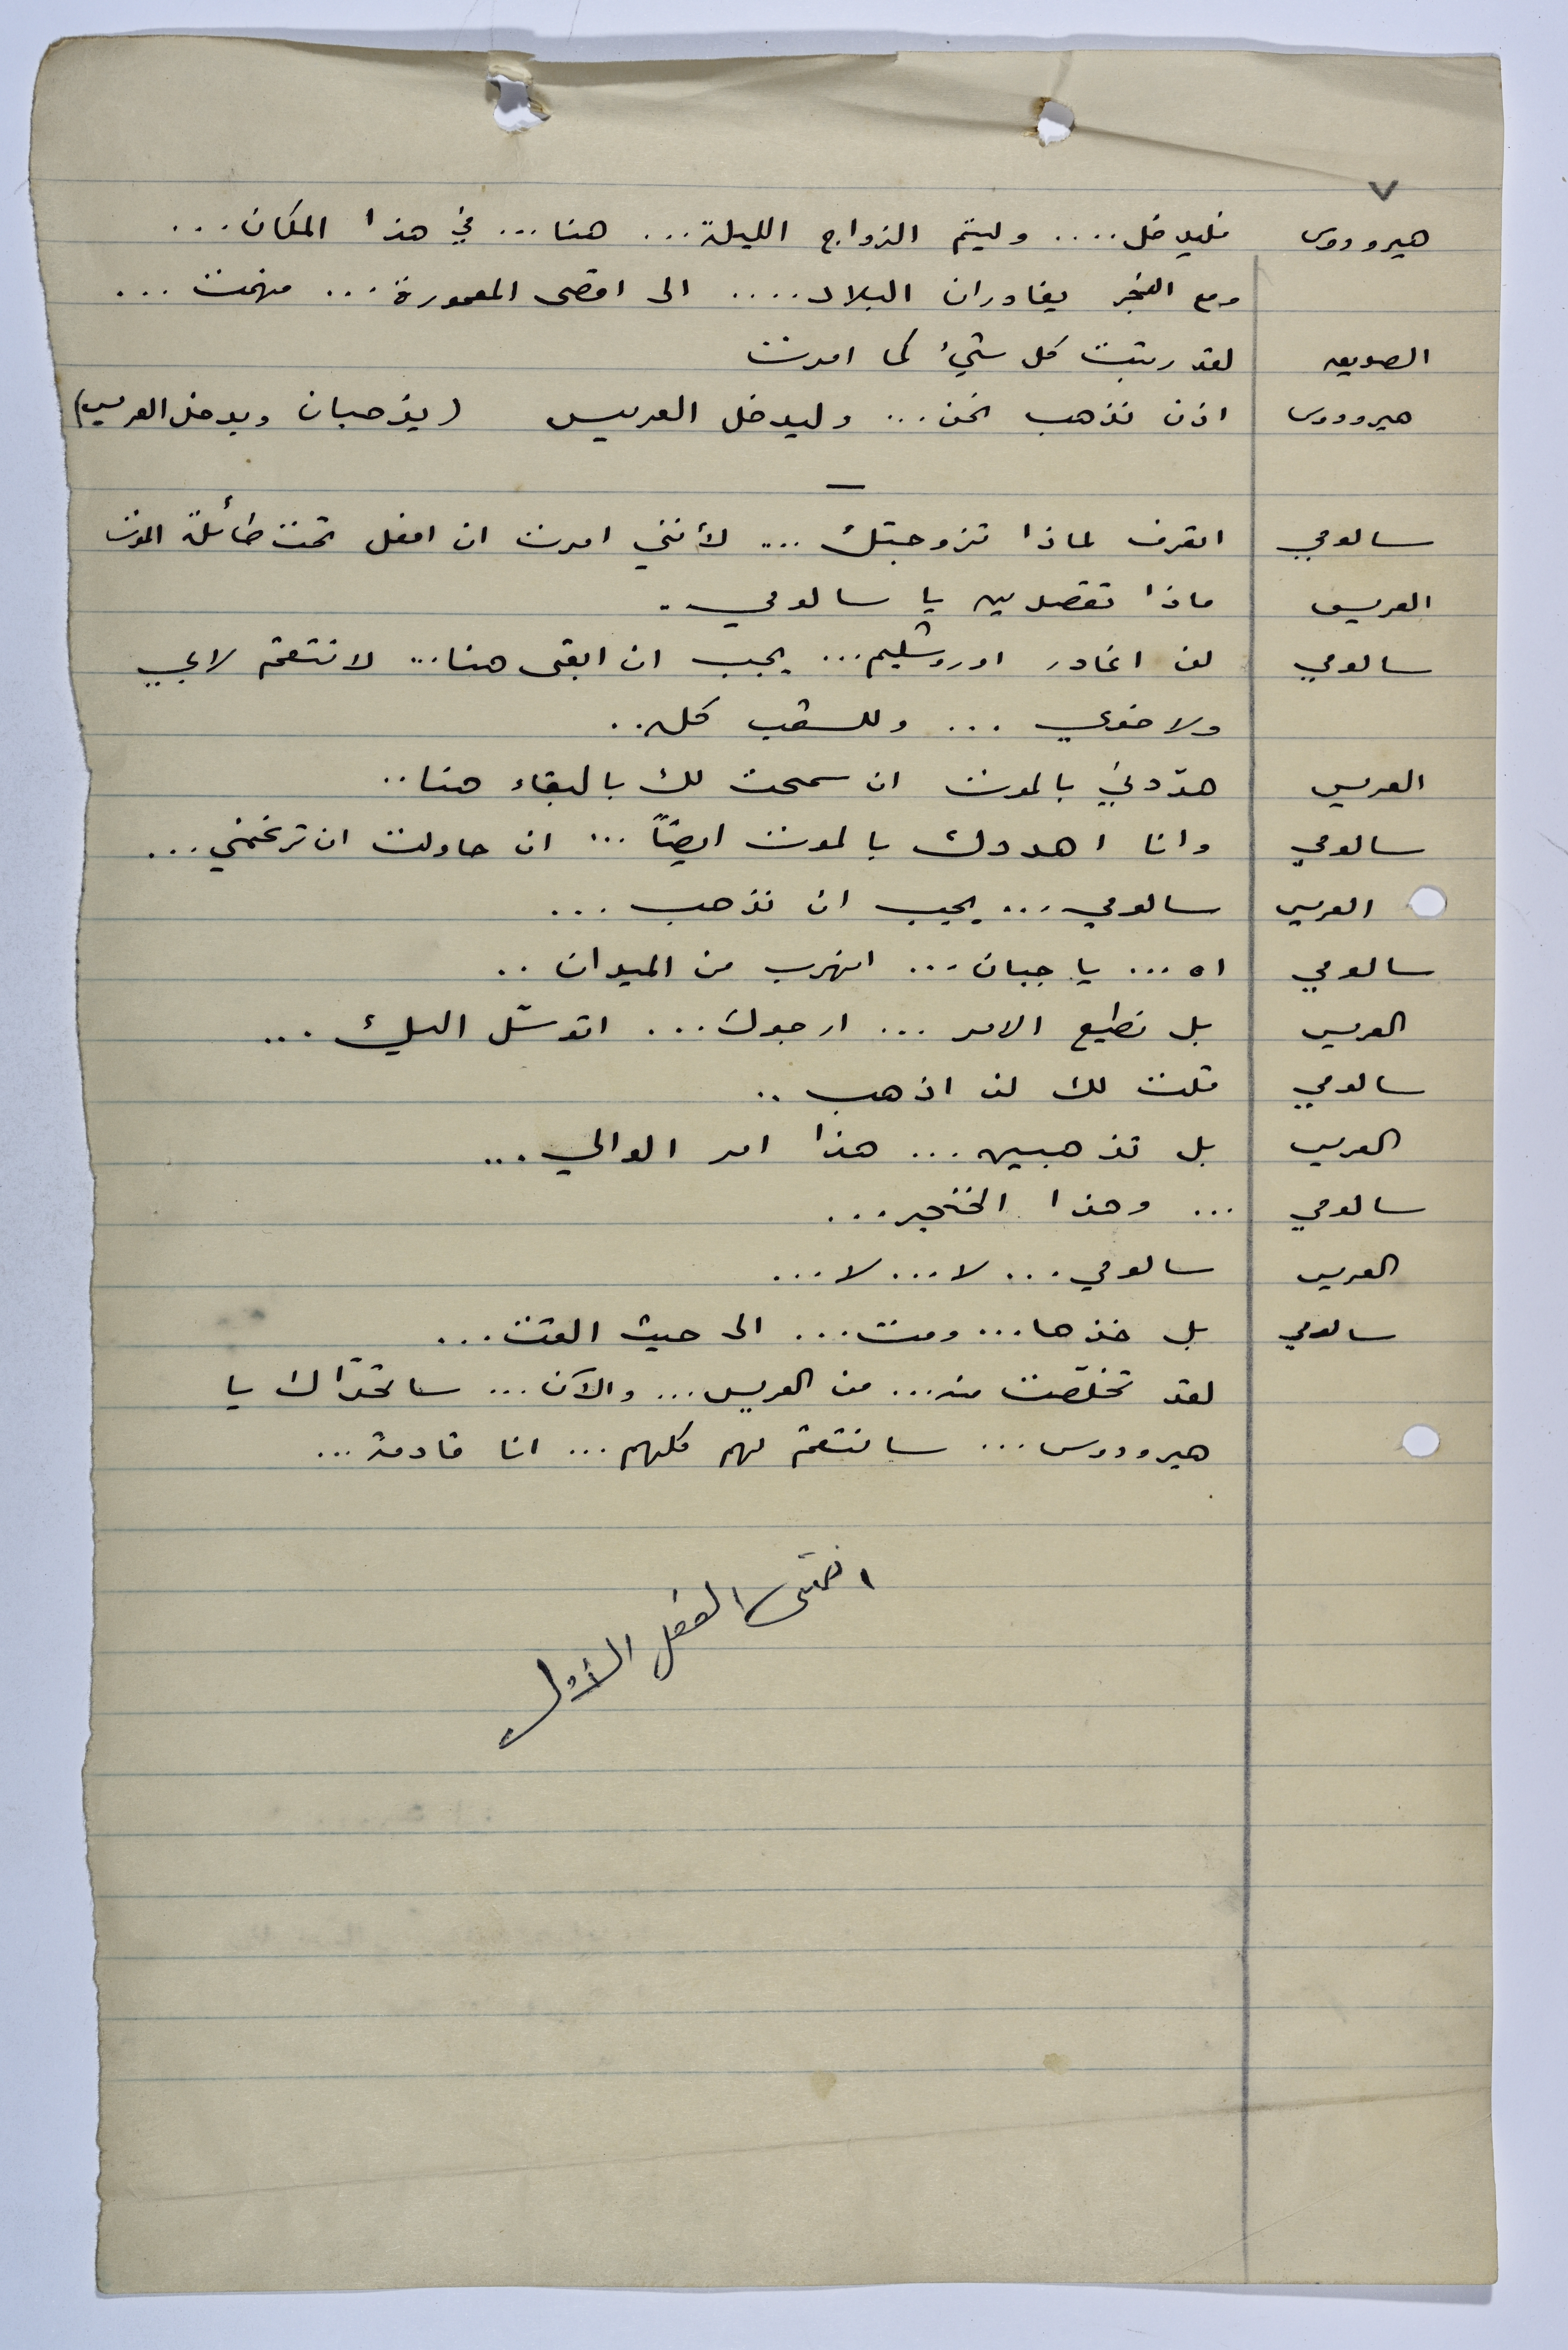 ٧
هيرودوس فليدخل .... وليتم الزواج الليلة ... هنا ... في هذا المكان ...
ومع الفجر يغادران البلاد .... الى اقصى المعمورة ... فهمت ...
الصديق لقد رتبت كل شيء كما امرت
هيرودوس اذن نذهب نحن ... وليدخل العريس (يذهبان ويدخل العريس)
—
سالومي اتعرف لماذا تزوجتك ... لأنني امرت ان افعل تحت طائلة الموت
العريس ماذا تقصدين يا سالومي .
سالومي لن اغادر اوروشليم ... يجب ان ابقى هنا ... لانتقم لابي
ولاخوي ... وللشعب كله ..
العريس هدّدوني بالموت ان سمحت لك بالبقاء هنا ..
سالومي وانا اهددك بالموت ايضاً ... ان حاولت ان ترغمني ...
العريس سالومي ... يجب ان نذهب ...
سالومي اه ... يا جبان ... اتهرب من الميدان ..
العريس بل نطيع الامر ... ارجوك ... اتوسّل اليك ...
سالومي قلت لك لن اذهب ..
العريس بل تذهبين ... هذا امر الوالي ...
سالومي ... وهذا الخنجر ...
العريس سالومي ... لا ... لا ...
سالومي بل خذها ... ومت ... الى حيث القت ...
لقد تخلّصت منه ... من العريس ... والآن ... ساتحدّاك يا
هيرودوس ... سانتقم لهم كلهم ... انا قادمة ...
انتهى الفصل الأول